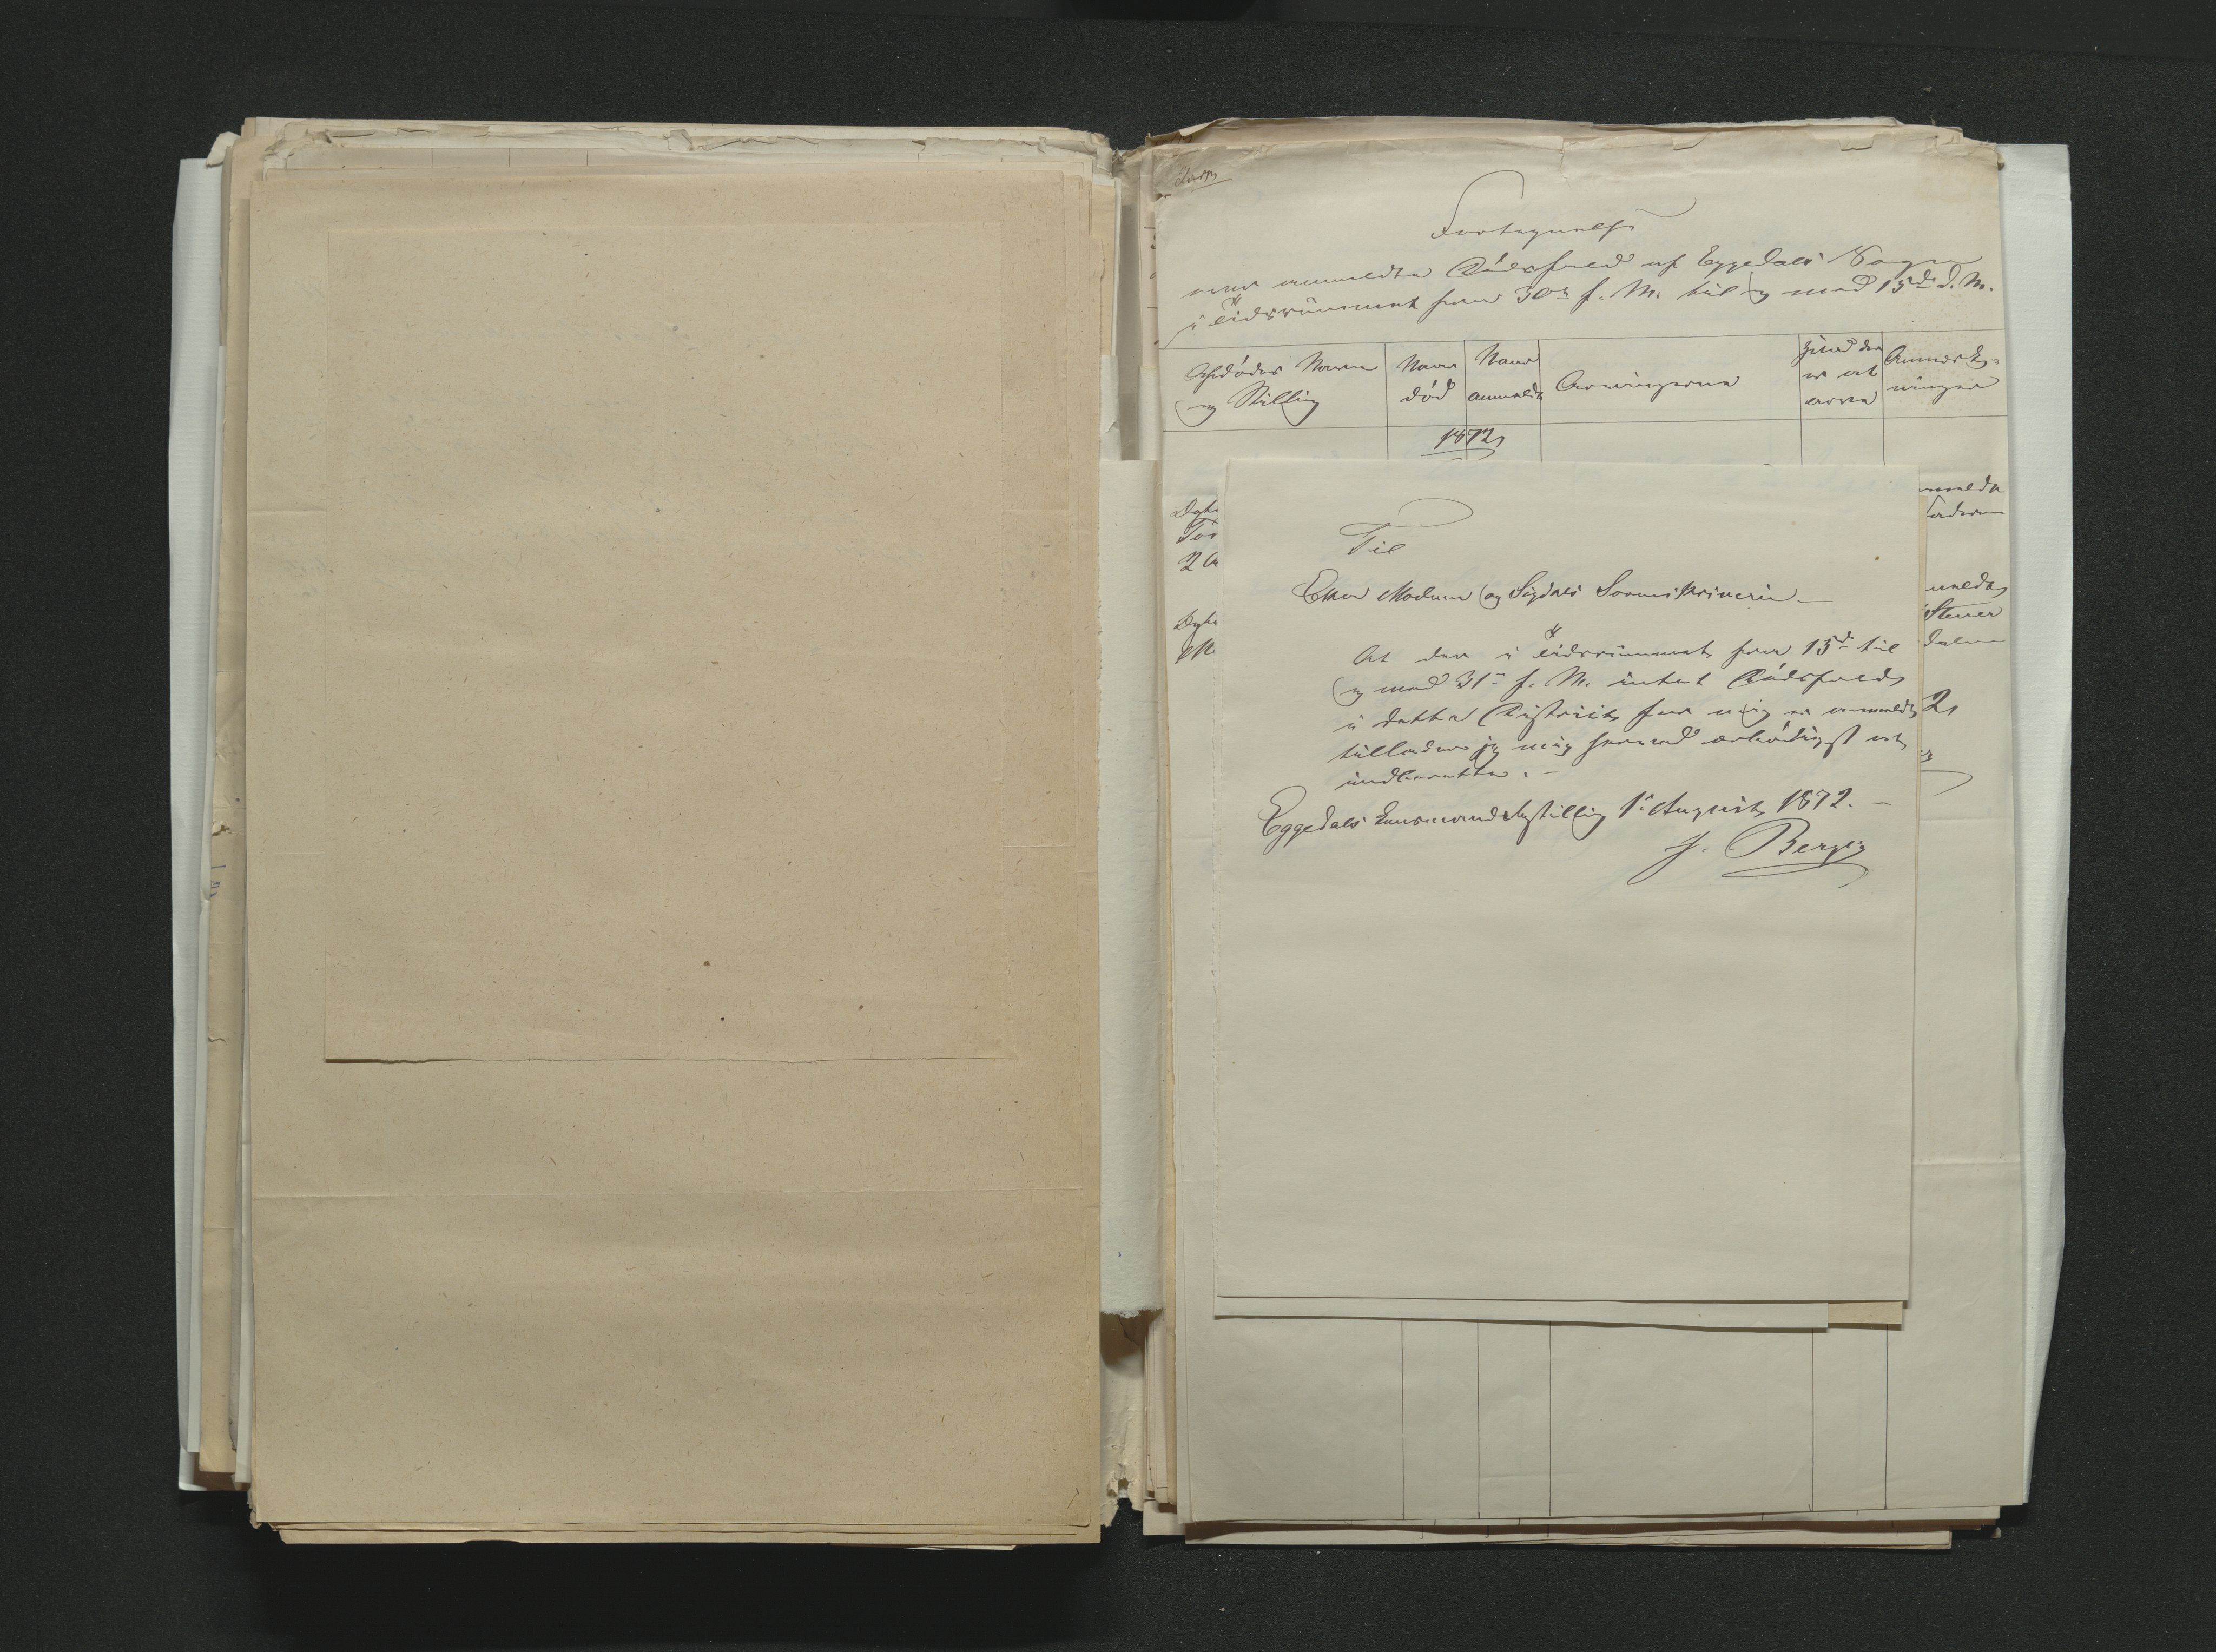 Fortegnelse
over anmeldte Dødsfald af Eggedals Sogn
i Tidsrummet fra 30te f. M. til og med 15de d. M.
Afdødes Navn
og Stilling
Naar
død
Naar
anmeldt
Arvingerne
Hvad der
er at
arve
Anmærk-
ninger
1872
anmeldt
2
Til
Eker Modum og Sigdals Sorenskriveri
At der i Tidsrummet fra 15de til
og med 31te f. M. intet Dødsfald
i dette District for mig er anmeldt
tillader jeg mig herved ærbødigst at
indberette. —
Eggedals Lensmandsbestilling 1te August 1872. —
Berg